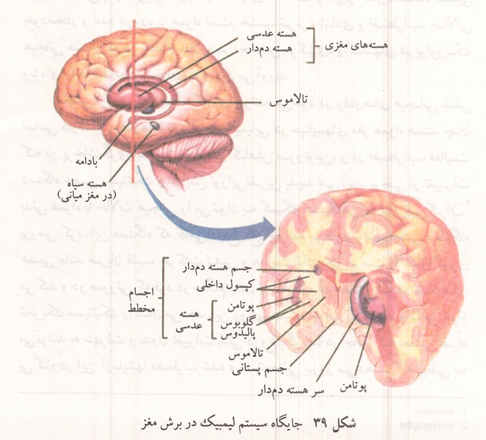 هسته عدسی
هسته دم‌دار
هسته‌های مغزی
تالاموس
بادامه
هسته سیاه
(در مغز میانی)
جسم هسته دم‌دار
کپسول داخلی
پوتامن
گلوبوس
پالیدوس
هسته
عدسی
اجسام
مخطط
تالاموس
جسم پستانی
سر هسته دم‌دار
پوتامن
شکل ۳۹ جایگاه سیستم لیمبیک در برش مغز